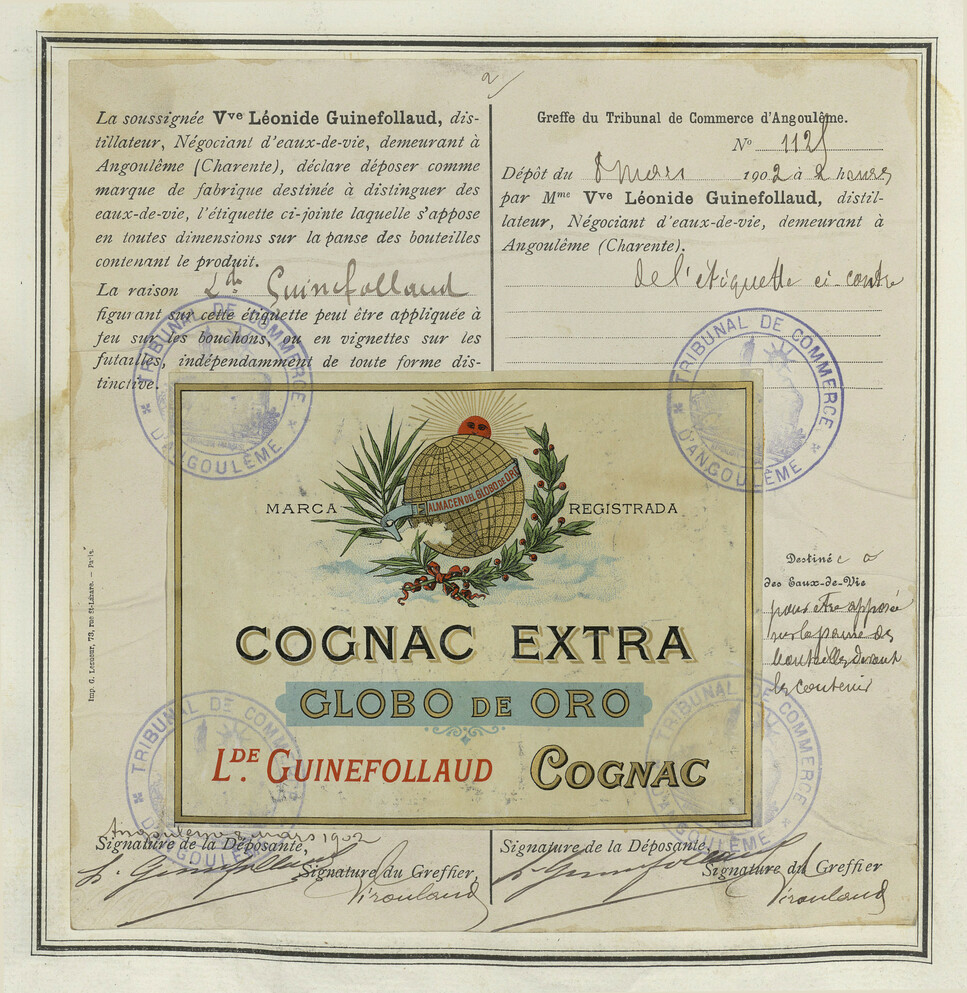 2
La soussignée Vve Léonide Guinefollaud, dis-
tillateur, Négociant d'eaux-de-vie, demeurant à
Angoulême (Charente), déclare déposer comme
marque de fabrique destinée à distinguer des
eaux-de-vie, l'étiquette ci-jointe laquelle s'appose
en toutes dimensions sur la panse des bouteilles
contenant le produit.
La raison Lde Guinefollaud
figurant sur cette étiquette peut être appliquée à
feu sur les bouchons, ou en vignettes sur les
futailles, indépendamment de toute forme dis-
tinctive.
Greffe du Tribunal de Commerce d'Angoulême.
No 1125
Dépôt du 8 mars 1902 à 2 heures
par Mme Vve Léonide Guinefollaud, distil-
lateur, Négociant d'eaux-de-vie, demeurant à
Angoulême (Charente).
de l'étiquette ci-contre
TRIBUNAL DE COMMERCE D'ANGOULÊME
TRIBUNAL DE COMMERCE D'ANGOULÊME
ALMACEN DEL GLOBO DE ORO
MARCA REGISTRADA
COGNAC EXTRA
GLOBO DE ORO
LDE. GUINEFOLLAUD COGNAC
Destiné à
des Eaux-de-Vie
pour être apposée
sur la panse des
bouteilles devant
les contenir
Imp. G. Lesueur, 73, rue St-Lazare. — Paris.
TRIBUNAL DE COMMERCE D'ANGOULÊME
TRIBUNAL DE COMMERCE D'ANGOULÊME
Angoulême 8 mars 1902
Signature de la Déposante,
L. Guinefollaud
Signature du Greffier,
Signature de la Déposante,
L. Guinefollaud
Signature du Greffier